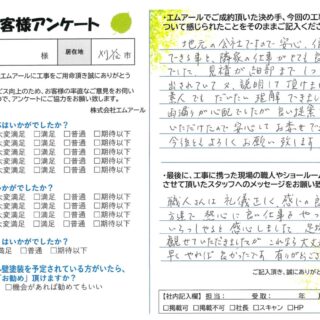 客様アンケート
様
居住地
刈谷市
エムアールに工事をご用命頂き誠にありがとう
ビス向上のため、お客様の率直なご意見をお伺い
ので、アンケートにご協力をお願い致します。
株式会社エムアール
はいかがでしたか?
大変満足 □満足 □普通 □期待以下
大変満足 □満足 □普通 □期待以下
大変満足 □満足 □普通 □期待以下
大変満足 □満足 □普通 □期待以下
大変満足 □満足 □普通 □期待以下
大変満足 □満足 □普通 □期待以下
大変満足 □満足 □普通 □期待以下
はいかがでしたか?
満足 □普通 □期待以下
塗装を予定されている方がいたら、
「お勧め」頂けますか?
□機会があれば勧めてもいい
・エムアールでご成約頂いた決め手、今回の工事
ついて感じられたことをそのままご記入ください
地元の会社ですので安心、信
できる事と、隣家の仕事がとても良
でした、見積が細部まで
出されていて又、説明して頂けま
素人でもだいたい理解できまし
雨漏りが心配でしたが良い提案
いただけたので安心してお任せで
今後ともよろしくお願い致します
・最後に、工事に携った現場の職人やショールーム
させて頂いたスタッフへのメッセージをお願い致
職人さんは礼儀正しく、感じの良
いらっしゃると感心しました
観せていただきましたが これなら大丈夫
早くやれば良かったです 有りがとう
ご記入頂き、誠にありがと
【社内記入欄】 担当: 受取: 年 月
□掲載可 □掲載不可 □社長 □スキャン □HP